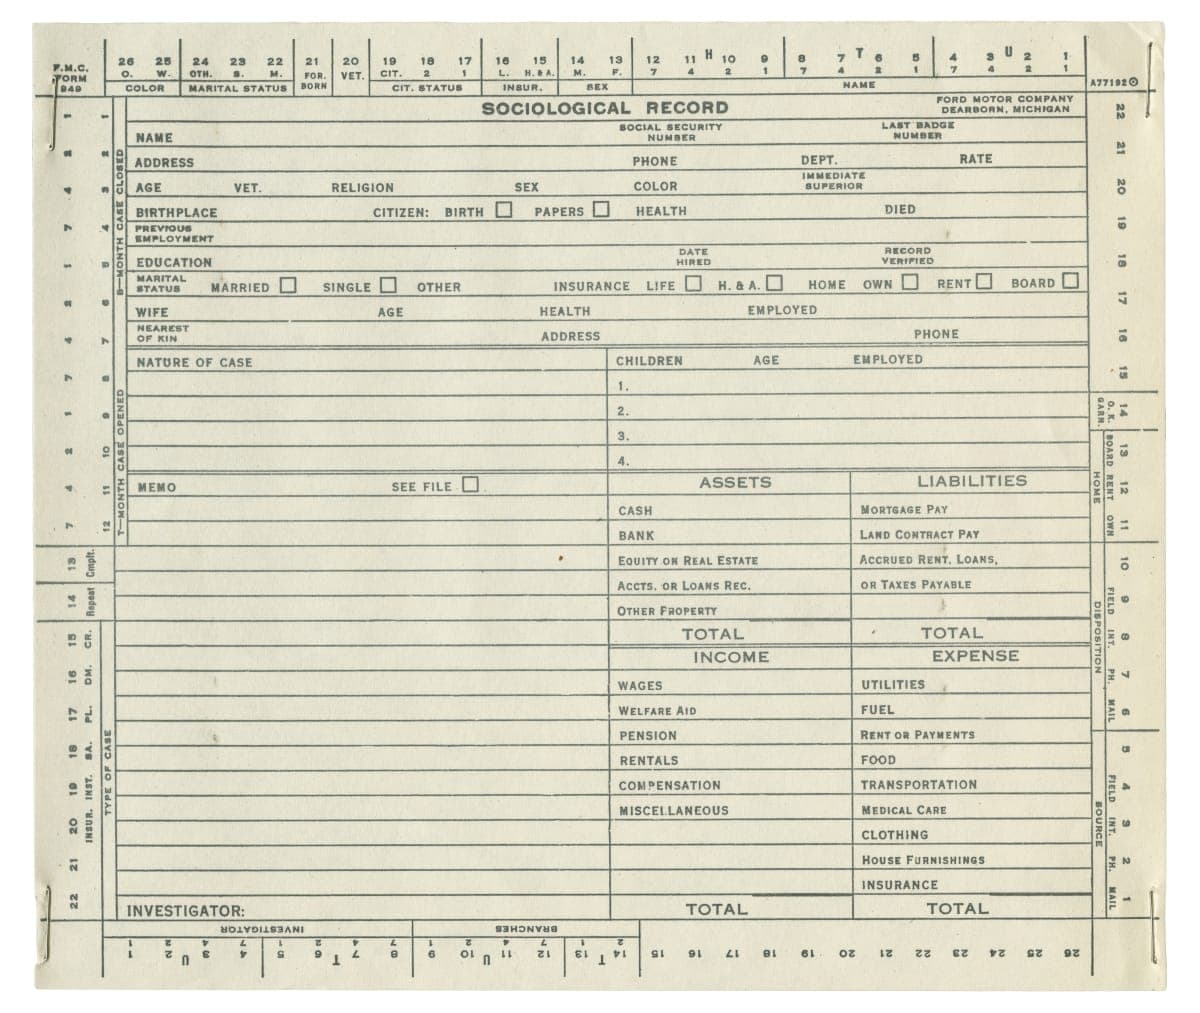 F.M.C. FORM 949
26 25 24 23 22 21 20 19 18 17 16 15 14 13 12 11 H 10 9 8 7 T 6 5 4 3 U 2 1
O. W. OTH. S. M. FOR. BORN VET. CIT. 2 1 L. H. & A. M. F. 7 4 2 1 7 4 2 1 7 4 2 1
COLOR MARITAL STATUS CIT. STATUS INSUR. SEX NAME
A77192
SOCIOLOGICAL RECORD
FORD MOTOR COMPANY
DEARBORN, MICHIGAN
NAME SOCIAL SECURITY NUMBER LAST BADGE NUMBER
ADDRESS PHONE DEPT. RATE
AGE VET. RELIGION SEX COLOR IMMEDIATE SUPERIOR
BIRTHPLACE CITIZEN: BIRTH PAPERS HEALTH DIED
PREVIOUS EMPLOYMENT
EDUCATION DATE HIRED RECORD VERIFIED
MARITAL STATUS MARRIED SINGLE OTHER INSURANCE LIFE H. & A. HOME OWN RENT BOARD
WIFE AGE HEALTH EMPLOYED
NEAREST OF KIN ADDRESS PHONE
NATURE OF CASE CHILDREN AGE EMPLOYED
1.
2.
3.
4.
MEMO SEE FILE ASSETS LIABILITIES
CASH MORTGAGE PAY
BANK LAND CONTRACT PAY
EQUITY ON REAL ESTATE ACCRUED RENT, LOANS,
ACCTS. OR LOANS REC. OR TAXES PAYABLE
OTHER PROPERTY
TOTAL TOTAL
INCOME EXPENSE
WAGES UTILITIES
WELFARE AID FUEL
PENSION RENT OR PAYMENTS
RENTALS FOOD
COMPENSATION TRANSPORTATION
MISCELLANEOUS MEDICAL CARE
CLOTHING
HOUSE FURNISHINGS
INSURANCE
INVESTIGATOR: TOTAL TOTAL
1 2 4 7 1 2 4 7 1 2 4 7 13 14 15 16 17 18 19 20 21 22
1 2 3 4 5 6 7 8 9 10 11 12
B—MONTH CASE CLOSED
T—MONTH CASE OPENED
Cmplt.
Repeat
CR. DM. PL. SA. INST. INSUR.
TYPE OF CASE
22 21 20 19 18 17 16 15 14 13 12 11 10 9 8 7 6 5 4 3 2 1
O.K. GARN.
BOARD RENT OWN
HOME
FIELD INT. PH. MAIL
DISPOSITION
FIELD INT. PH. MAIL
SOURCE
BRANCHES INVESTIGATOR
2 1 7 4 2 1 7 4 2 1 7 4 2 1
26 25 24 23 22 21 20 19 18 17 16 15 14 T 13 12 11 U 10 9 8 7 T 6 5 4 3 U 2 1